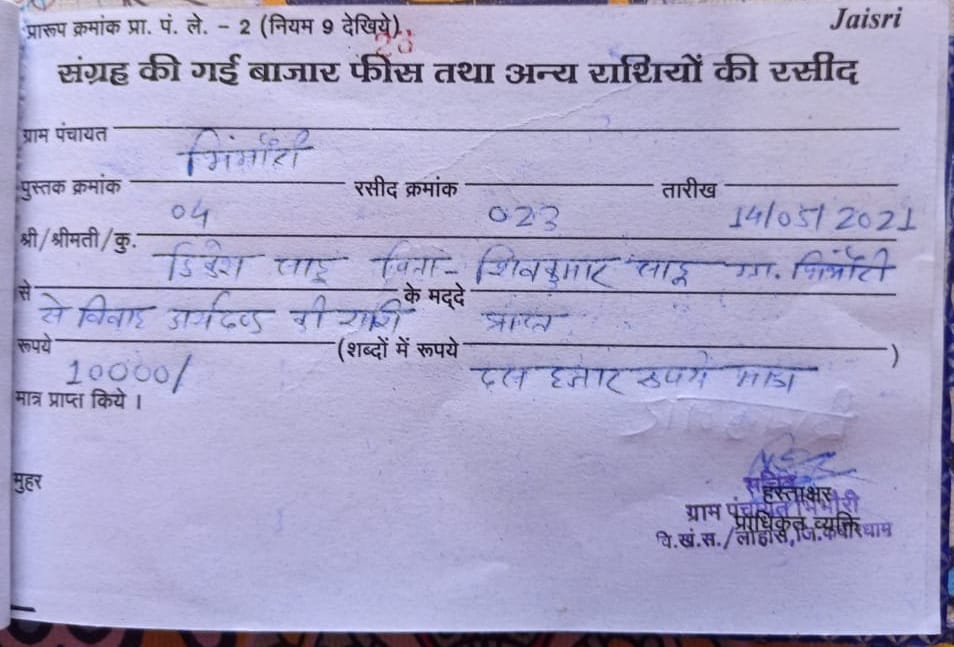 Jaisri
प्रारूप क्रमांक प्रा. पं. ले. - 2 (नियम 9 देखिये).
23
संग्रह की गई बाजार फीस तथा अन्य राशियों की रसीद
ग्राम पंचायत भिंभौरी
पुस्तक क्रमांक 04 रसीद क्रमांक 023 तारीख 14/05/2021
श्री/श्रीमती/कु. साहू पिता - शिवकुमार साहू ग्रा. भिंभौरी
से से विवाह अर्थदण्ड की राशि के मद्दे प्राप्त
रूपये 10000/ (शब्दों में रूपये दस हजार रुपये मात्र)
मात्र प्राप्त किये ।
मुहर
सचिव
हस्ताक्षर
ग्राम पंचायत भिंभौरी
प्राधिकृत व्यक्ति
वि.खं.स./लोहारा, जि.कबीरधाम